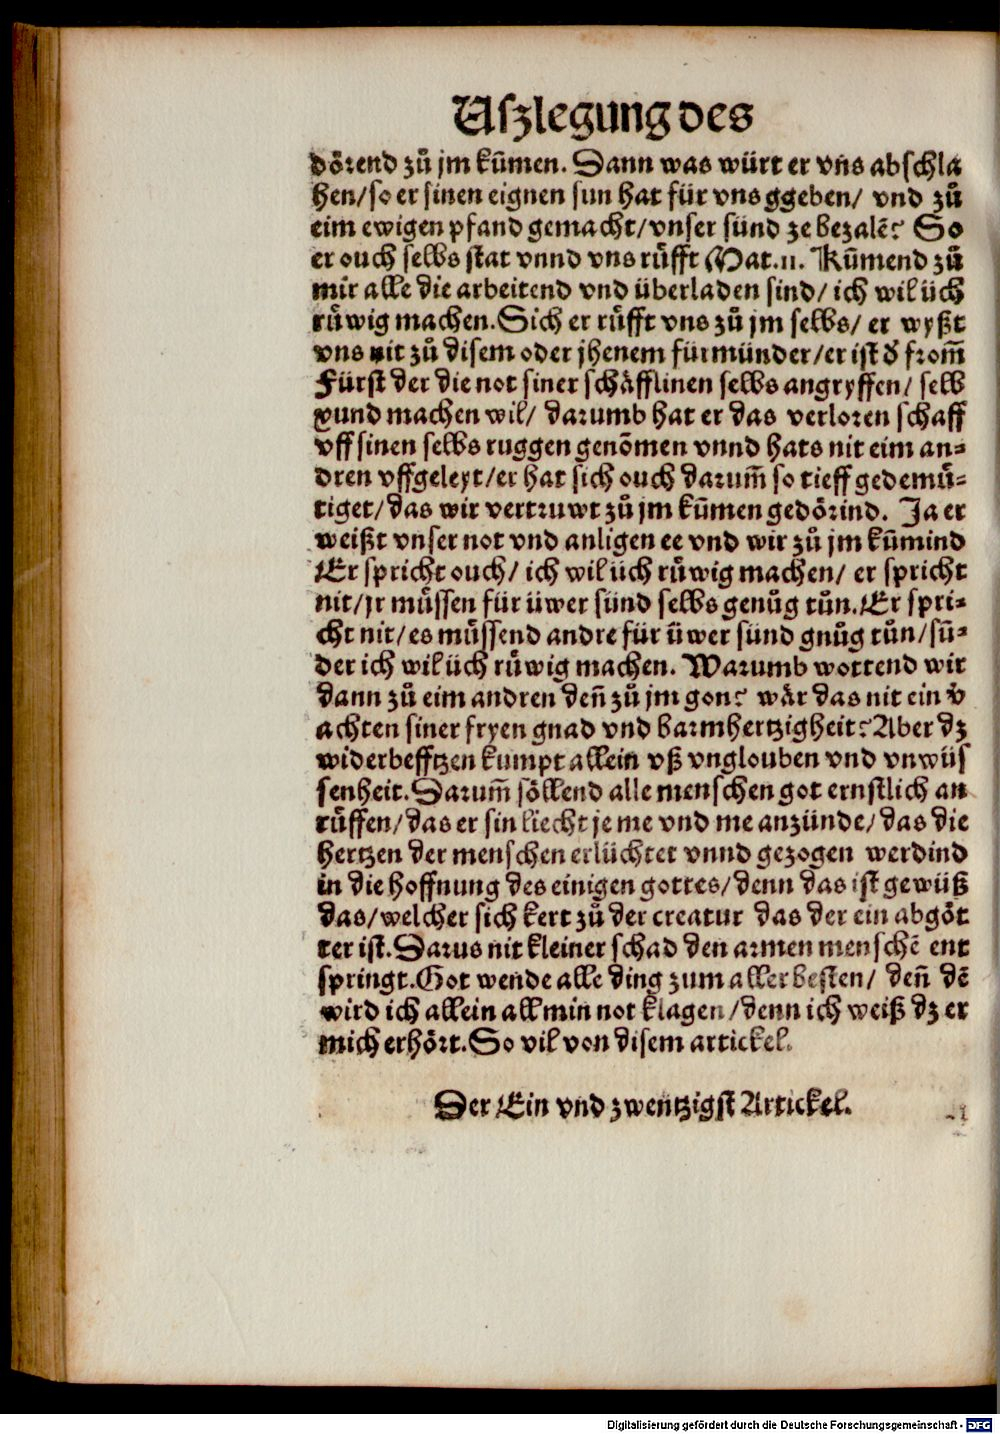 Uſzlegung des
dörend zů jm kūmen. Dann was würt er vns abschla
hen/so er sinen eignen sun hat für vns ggeben/ vnd zů
eim ewigen pfand gemacht/vnser sünd ze bezalē? So
er ouch selbs stat vnnd vns rüfft Mat.11. Kūmend zů
mir alle die arbeitend vnd überladen sind/ ich wil üch
rüwig machen. Sich er rüfft vns zů jm selbs/ er wyßt
vns nit zů disem oder jhenem fürmünder/er ist d̄ from̄
Fürst der die not siner schäfflinen selbs angryffen/ selb
gund machen wil/ darumb hat er das verloren schaff
vff sinen selbs ruggen genōmen vnnd hats nit eim an⸗
dren vffgeleyt/er hat sich ouch darum̄ so tieff gedemü⸗
tiget/das wir vertruwt zů jm kūmen gedörind. Ja er
weißt vnser not vnd anligen ee vnd wir zů jm kūmind
Er spricht ouch/ ich wil üch rüwig machen/ er spricht
nit/jr müssen für üwer sünd selbs genůg tůn. Er spri⸗
cht nit/es müssend andre für üwer sünd gnůg tůn/sū⸗
der ich wil üch rüwig machen. Warumb wottend wir
dann zů eim andren den̄ zů jm gon? wär das nit ein v̄
achten siner fryen gnad vnd barmhertzigheit? Aber dz
widerbefftzen kumpt allein vß vnglouben vnd vnwüs
senheit. Darum̄ söllend alle menschen got ernstlich an
rüffen/das er sin liecht je me vnd me anzünde/das die
hertzen der menschen erlüchtet vnnd gezogen werdind
in die hoffnung des einigen gottes/denn das ist gewüß
das/welcher sich kert zů der creatur das der ein abgöt
ter ist. Darus nit kleiner schad den armen menschē ent
springt. Got wende alle ding zum aller besten/ den̄ dē
wird ich allein all min not klagen/denn ich weiß dz er
mich erhört. So vil von disem artickel.
Der Ein vnd zwentzigst Artickel.
Digitalisierung gefördert durch die Deutsche Forschungsgemeinschaft - DFG